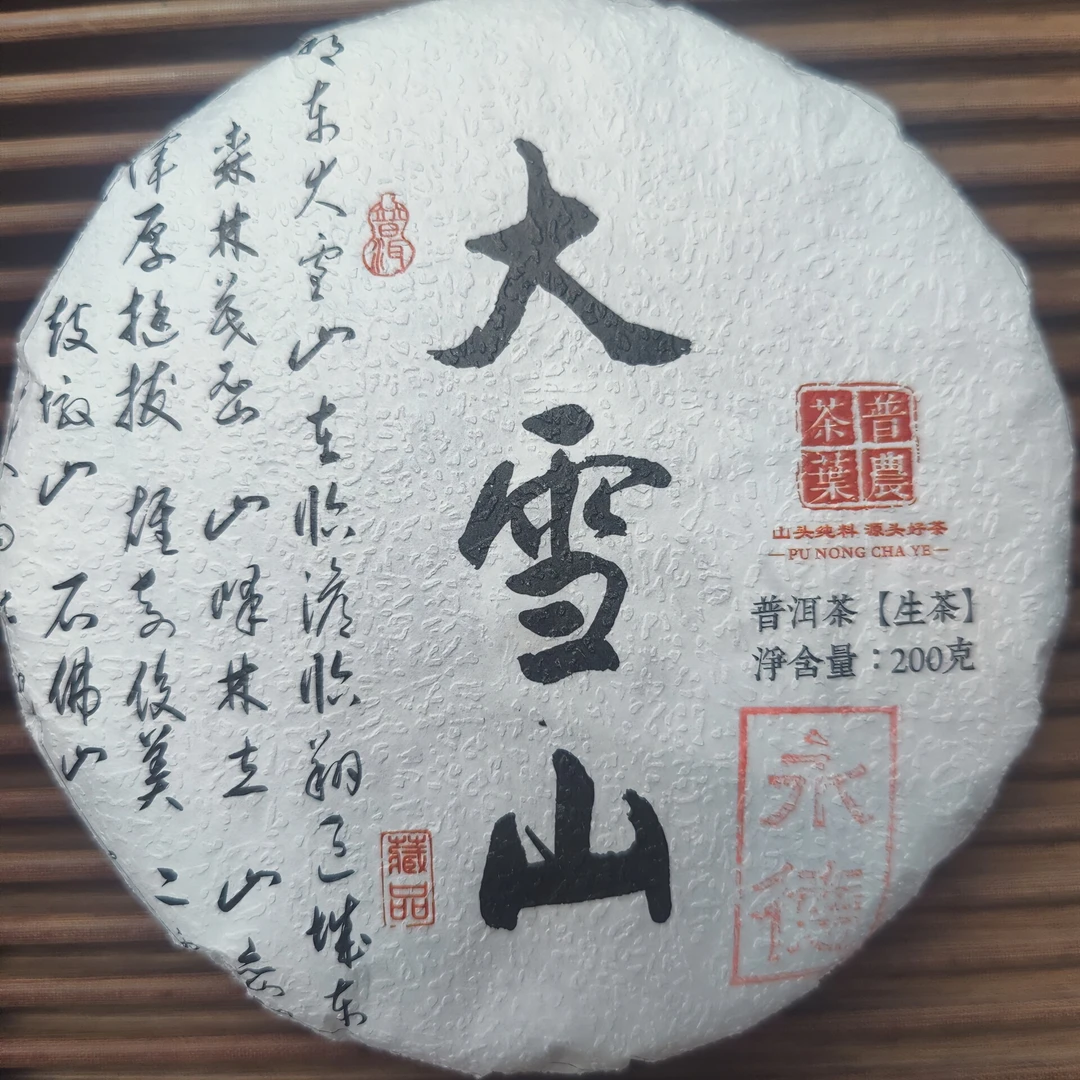 大雪山
普農
茶葉
山头纯料 源头好茶
PU NONG CHA YE
普洱茶【生茶】
淨含量：200克
永德
普濃
藏品
邦东大雪山在临沧临翔区城东
森林茂密 山峰林立 山峦
浑厚挺拔 雄奇俊美 二
鼓墩山 石佛山